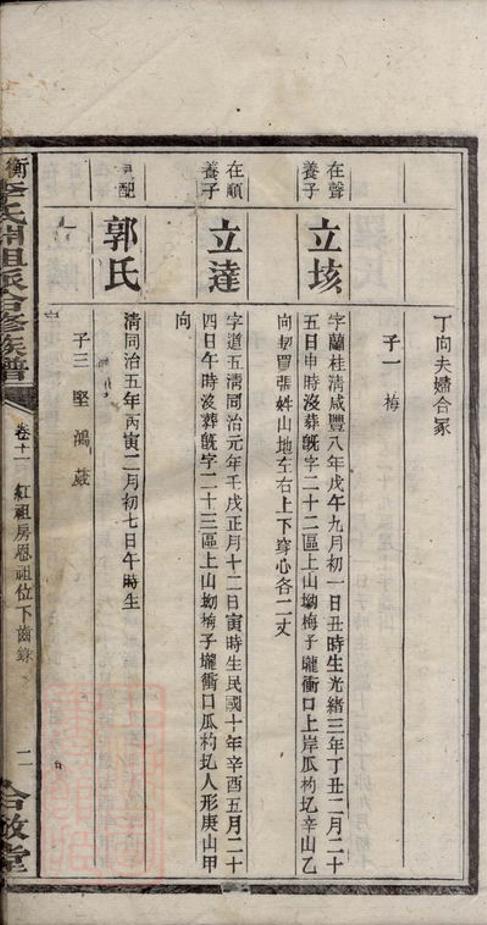 丁向夫婦合冢
子一 梅
在聲養子
立垓
字蘭桂清咸豐八年戊午九月初一日丑時生光緒三年丁丑二月二十
五日申時沒葬旣字二十二區上山坳梅子壠衝口上岸瓜杓圫辛山乙
向契買張姓山地左右上下穿心各二丈
在順養子
立達
字道五清同治元年壬戌正月十二日寅時生民國十年辛酉五月二十
四日午時沒葬旣字二十三區上山坳梅子壠衝口瓜杓圫人形庚山甲
向
配
郭氏
清同治五年丙寅二月初七日午時生
子三 堅 鴻 葳
衡 李氏開祖派合修族譜
卷十一
紅祖房恩祖位下齒錄
二
合敬堂